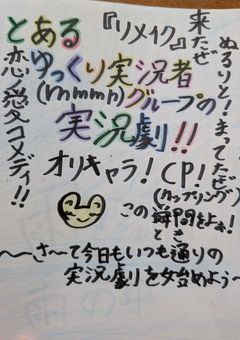 『リメイク』
とある
ゆっくり実況者
(mmmn)グループの
実況劇!!
恋愛コメディ!!
来たぜ
ぬるりと!まってたぜ
オリキャラ!CP!
(カップリング)
この瞬間をよォ!
とき
〜〜さ〜て今日もいつも通りの
実況劇を始めよう〜